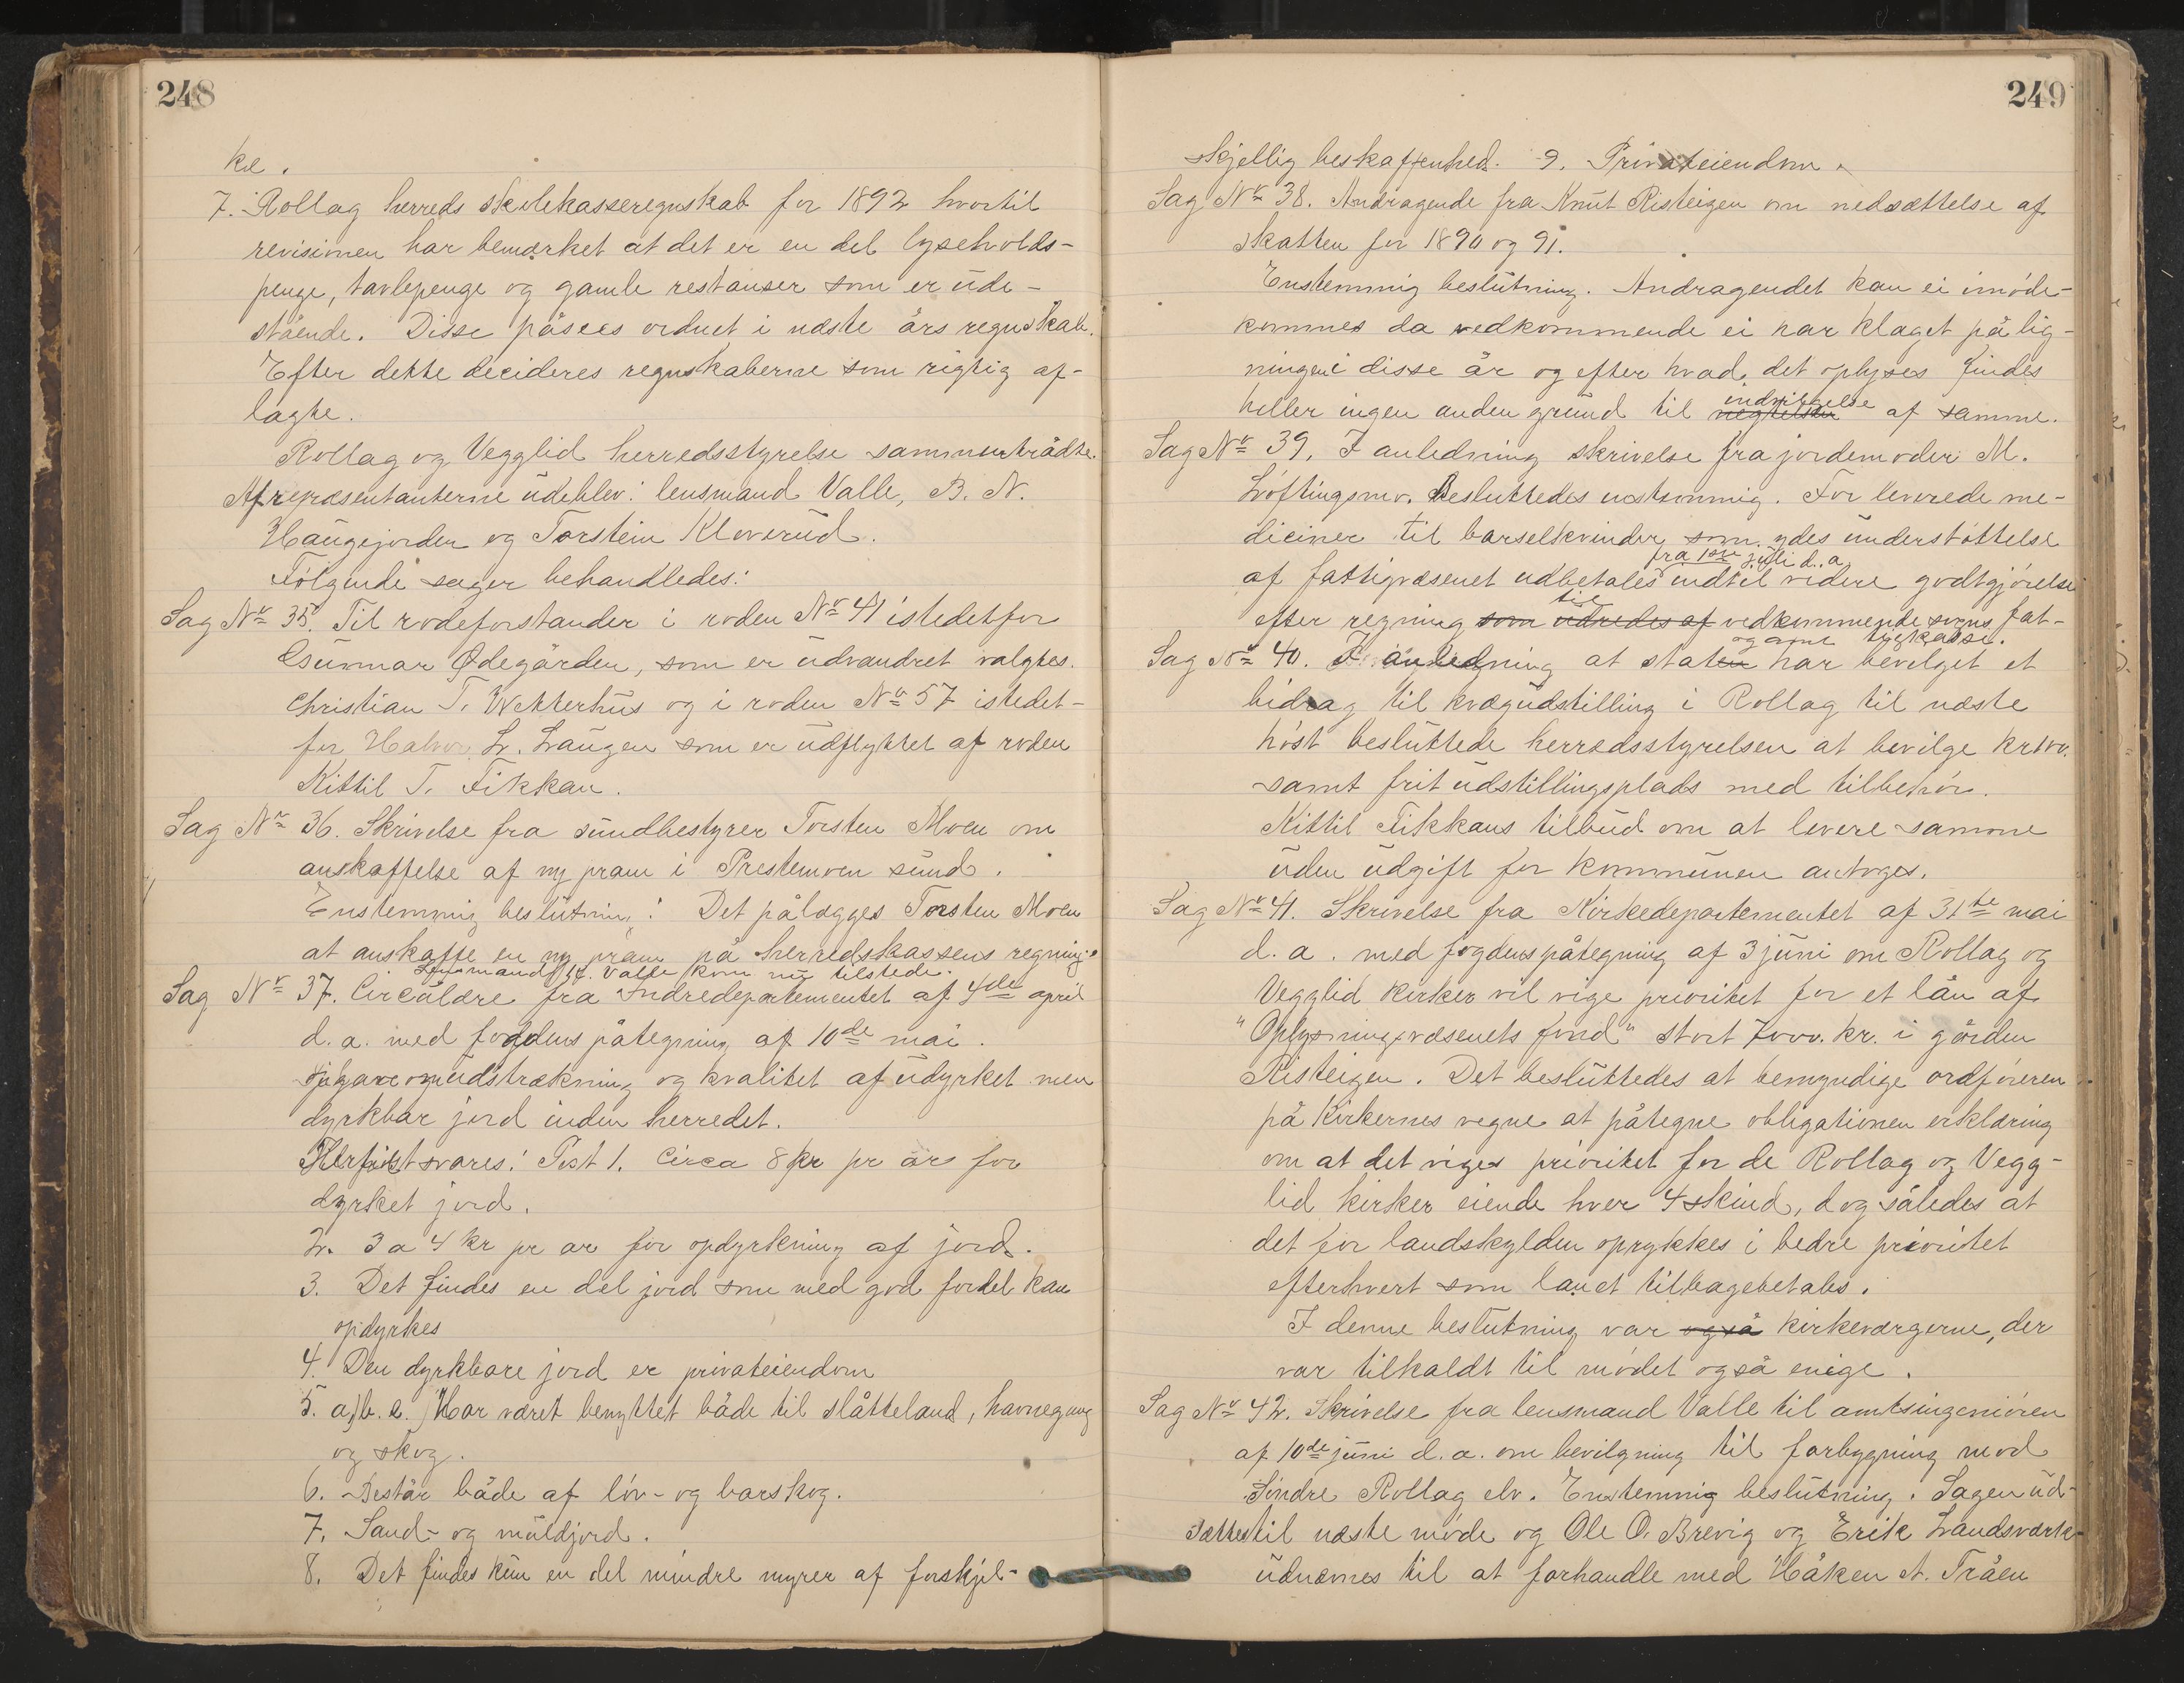 248
ke.
7. Rollag herreds skolekasseregnskab for 1892 hvortil
revisionen har bemærket at det er en del lyseholds-
penge, tavlepenge og gamle restanser som er ude-
stående. Disse påsees ordnet i næste års regnskab.
Efter dette decideres regnskaberne som rigtig af-
lagte.
Rollag og Vegglid herredsstyrelse sammentrådte.
Af repræsentanterne udeblev: lensmand Valle, B. N.
Haugejorden og Torstein Kloverud.
Følgende sager behandledes:
Sag Nr 35. Til rodeforstander i roden Nr 41 istedetfor
Gunnar Ødegården, som er udvandret valgtes.
Christian T. Wetterhus og i roden Nr 57 istedet-
for Halvor L. Laugen som er udflyttet af roden
Kittil T. Fikkan.
Sag Nr 36. Skrivelse fra sundbestyrer Torsten Moen om
anskaffelse af ny pram i Prestemoen sund.
Enstemmig beslutning: Det pålægges Torsten Moen
at anskaffe en ny pram på herredskassens regning.
Lensmand H. Valle kom nu tilstede.
Sag Nr 37. Circulære fra Indredepartementet af 4de april
d. a. med fogdens påtegning af 10de mai.
opgave om udstrækning og kvalitet af udyrket men
dyrkbar jord inden herredet.
Herpåt svares: Post 1. Circa 8 kr pr ar for
dyrket jord.
2. 3 a 4 kr pr ar for opdyrkning af jord.
3. Det findes en del jord som med god fordel kan
opdyrkes
4. Den dyrkbare jord er privateiendom
5. a) b. c.) Har været benyttet både til slåtteland, havnegang
og skog.
6. Består både af løv- og barskog.
7. Sand- og muldjord.
8. Det findes kun en del mindre myrer af forskjel-
249
skjellig beskaffenhed. 9. Privateiendom.
Sag Nr 38. Andragende fra Knut Risteigen om nedsættelse af
skatten for 1890 og 91.
Enstemmig beslutning. Andragendet kan ei imøde-
kommes da vedkommende ei har klaget på lig-
ningen i disse år og efter hvad det oplyses findes
indvilgelse
heller ingen anden grund til negtelsen af samme.
Sag Nr 39. I anledning skrivelse fra jordemoder M.
Løftingsmo. besluttedes enstemmig. For leverede me-
diciner til barselkvinder som ydes understøttelse
fra 1ste juli d. a.
af fattigvæsenet udbetales indtil videre godtgjørelse
til
efter regning som udredes af vedkommende sogns fat-
tigkasse.
Sag Nr 40. I anledning at staten og amt har bevilget et
bidrag til kvægudstilling i Rollag til næste
høst besluttede herredsstyrelsen at bevilge kr 100.
samt frit udstillingsplads med tilbehør.
Kittil Fikkans tilbud om at levere samme
uden udgift for kommunen antoges.
Sag Nr 41. Skrivelse fra Kirkedepartementet af 31te mai
d. a. med fogdens påtegning af 3 juni om Rollag og
Vegglid kirker vil vige prioritet for et lån af
"Oplysningsvæsenets fond" stort 7000. kr. i gården
Risteigen. Det besluttedes at bemyndige ordføreren
på kirkernes vegne at påtegne obligationen erklæring
om at det viges prioritet for de Rollag og Vegg-
lid kirker eiende hver 4 skind, dog således at
det for landskylden oprykkes i bedre prioritet
efterhvert som lånet tilbagebetales.
I denne beslutning var også kirkeværgerne, der
var tilkaldt til mødet også enige.
Sag Nr 42. Skrivelse fra lensmand Valle til amtsingeniøren
af 10de juni d. a. om bevilgning til forbygning mod
Søndre Rollag elv. Enstemmig beslutning. Sagen ud-
sættes til næste møde og Ole O. Brevig og Erik Landsværk
udnævnes til at forhandle med Håken A. Tråen